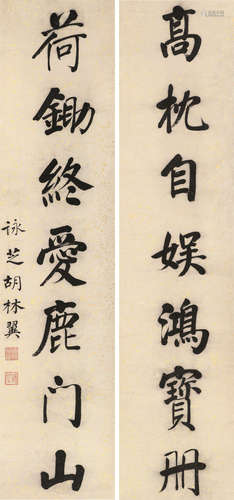 高枕自娱鴻寶册
荷鋤終愛鹿门山
詠芝胡林翼